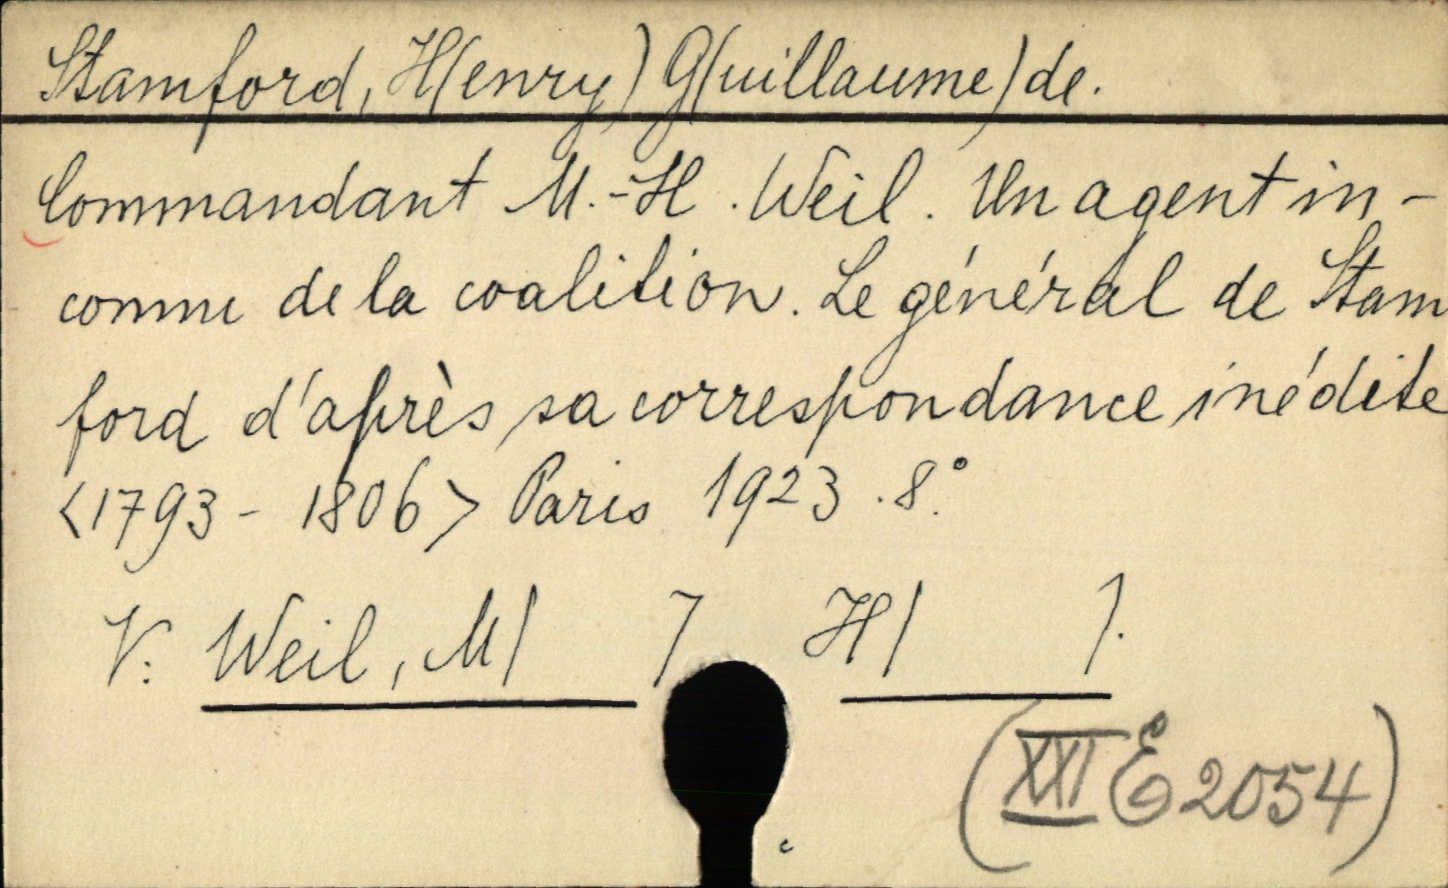 Stamford, H(enry) G(uillaume) de.
Commandant M.-H. Weil. Un agent in-
connu de la coalition. Le général de Stam
ford d'après sa correspondance inédite
<1793 - 1806> Paris 1923. 8°.
V: Weil, M( ) H( ).
(XXI E 2054)